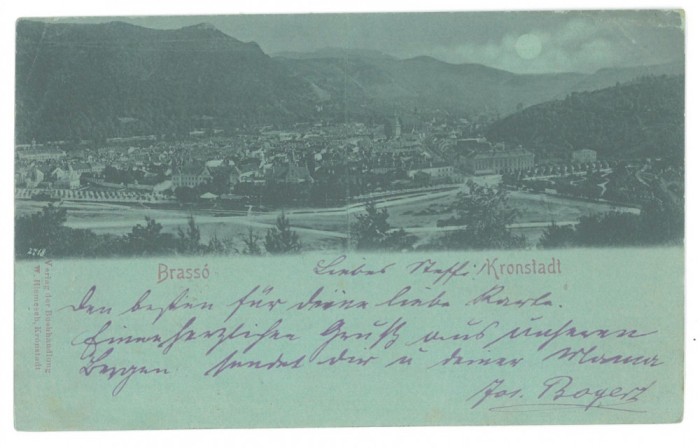 2768
Brassó Liebes Steffi! Kronstadt
Den besten für deine liebe Karte.
Einen herzlichen Gruß aus unseren
Bergen sendet dir u deiner Mama
Jos. Bogert
Verlag der Buchhandlung
W. Hiemesch, Kronstadt